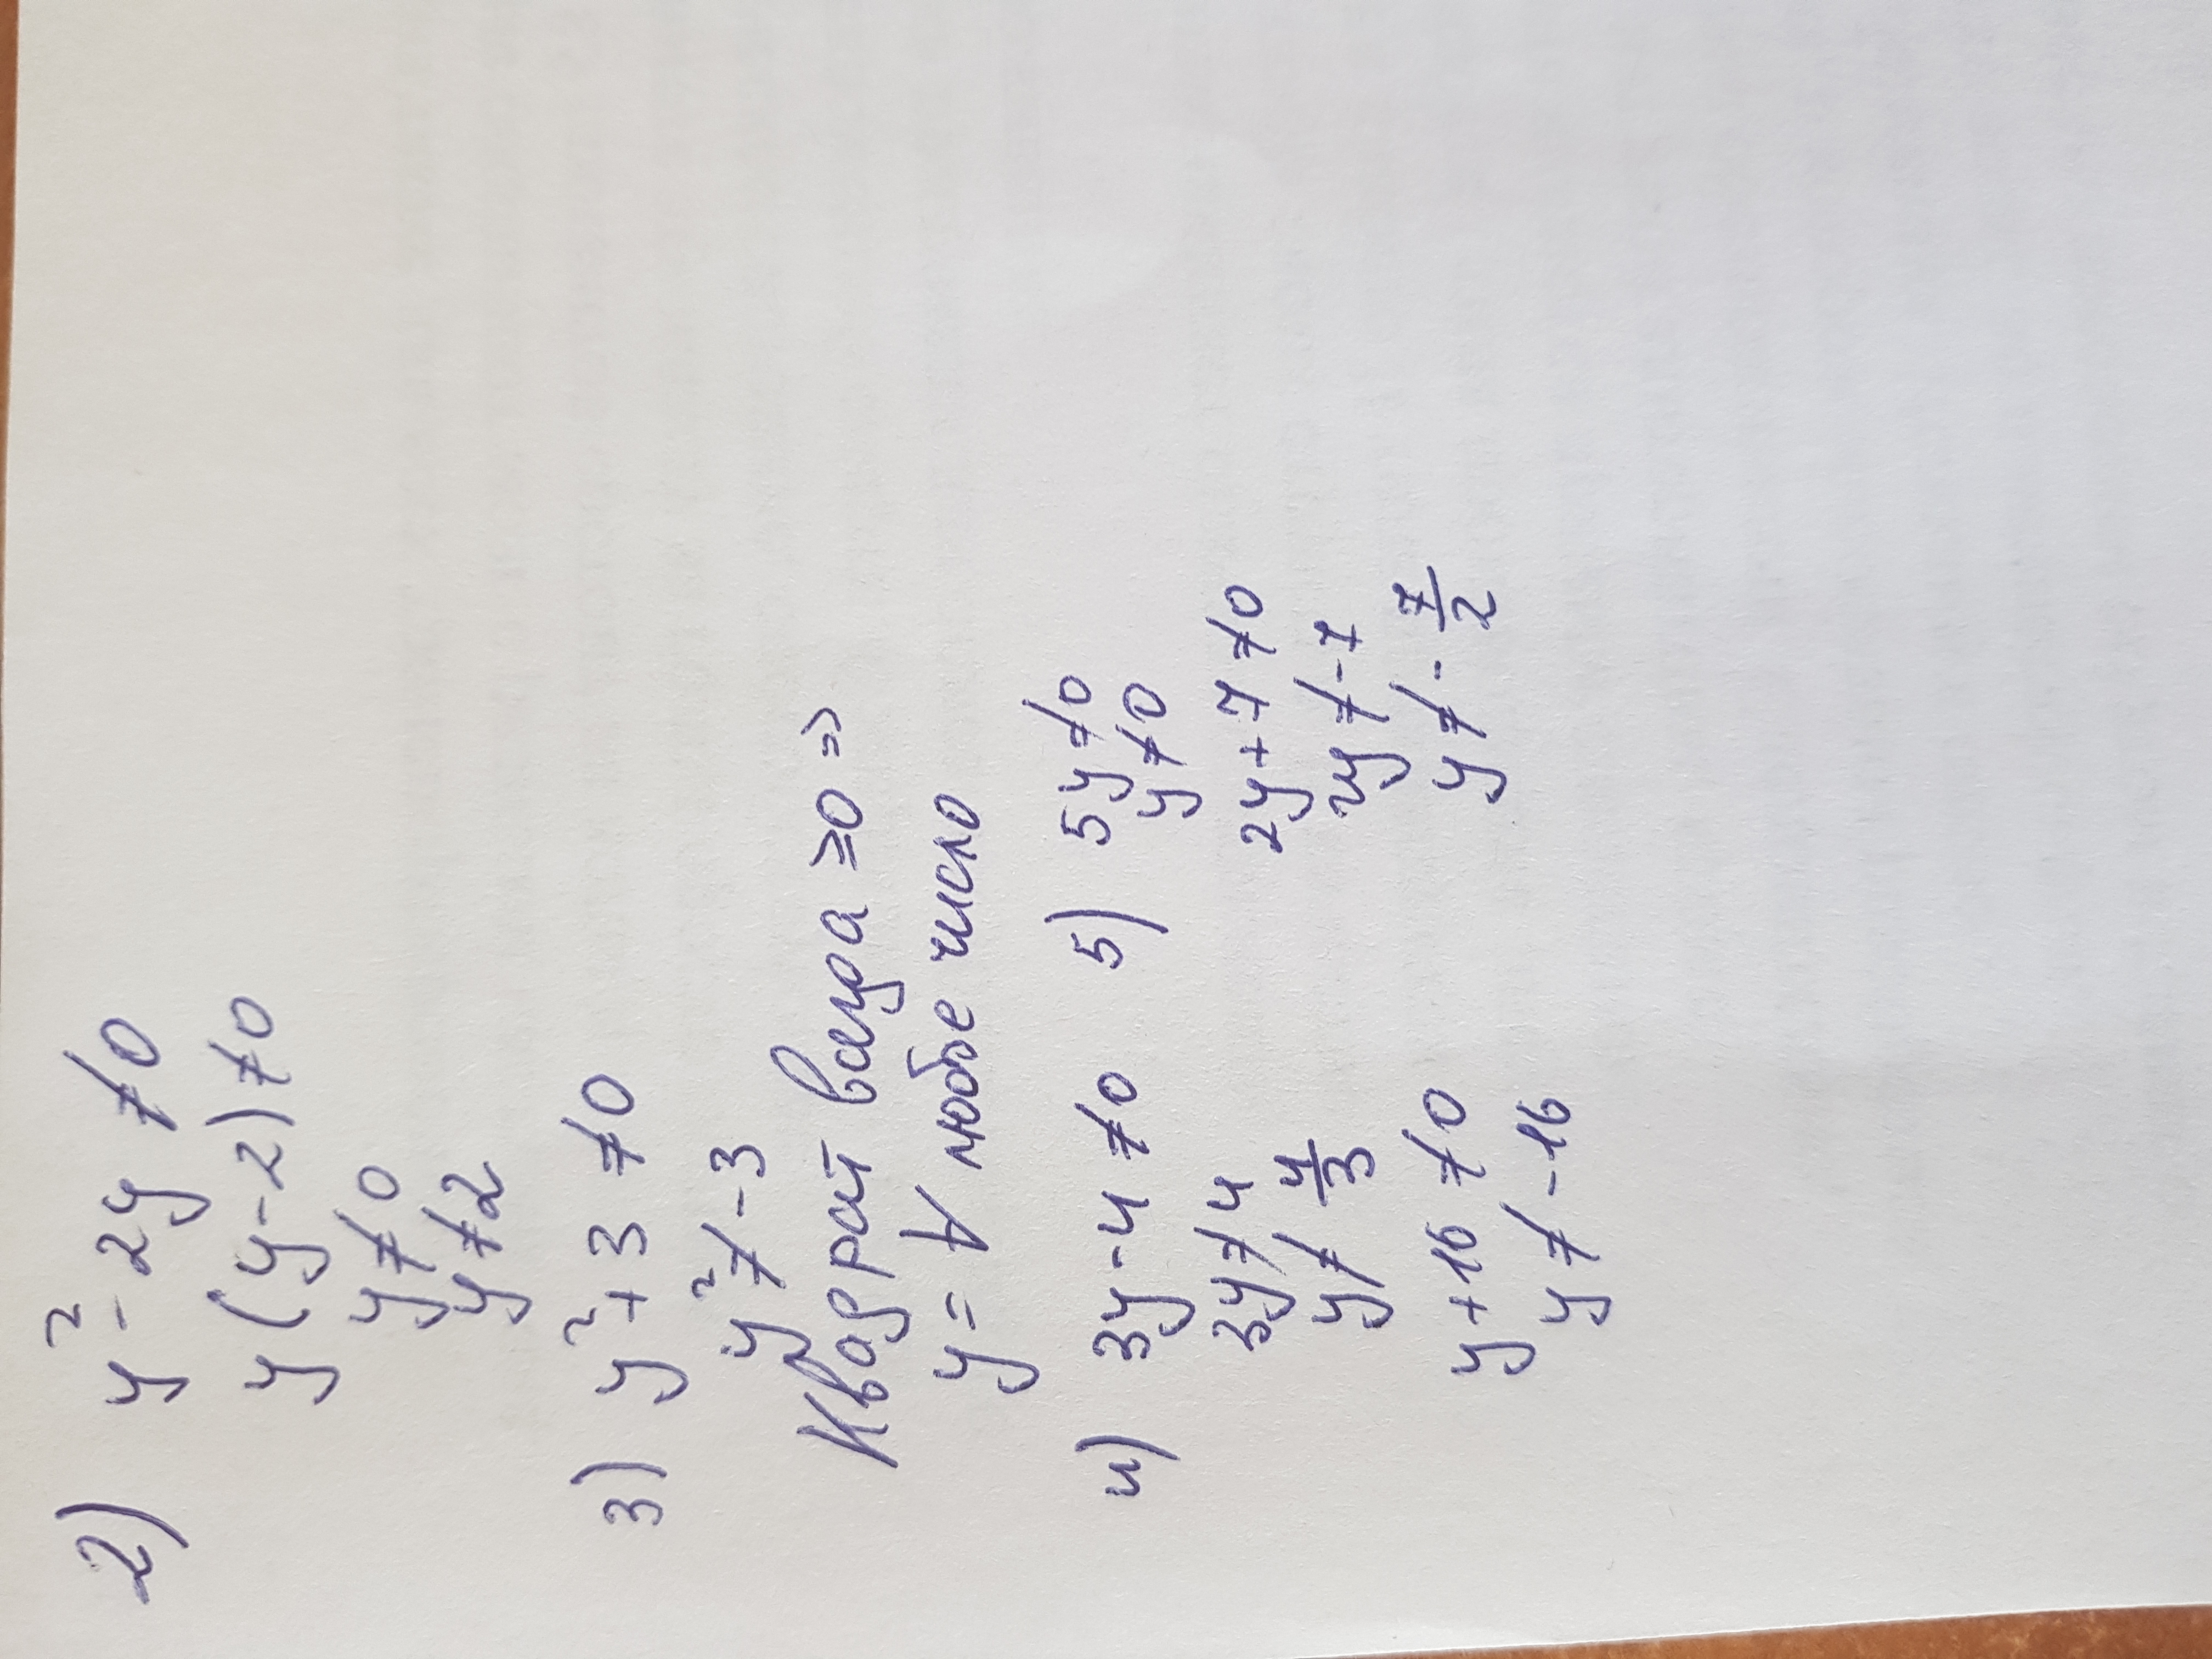 2) y² - 2y ≠ 0
y(y-2) ≠ 0
y ≠ 0
y ≠ 2
3) y² + 3 ≠ 0
y² ≠ -3
Квадрат всегда ≥0 =>
y = ∀ любое число
4) 3y - 4 ≠ 0
3y ≠ 4
y ≠ 4/3
y + 16 ≠ 0
y ≠ -16
5) 5y ≠ 0
y ≠ 0
2y + 7 ≠ 0
2y ≠ -7
y ≠ - 7/2